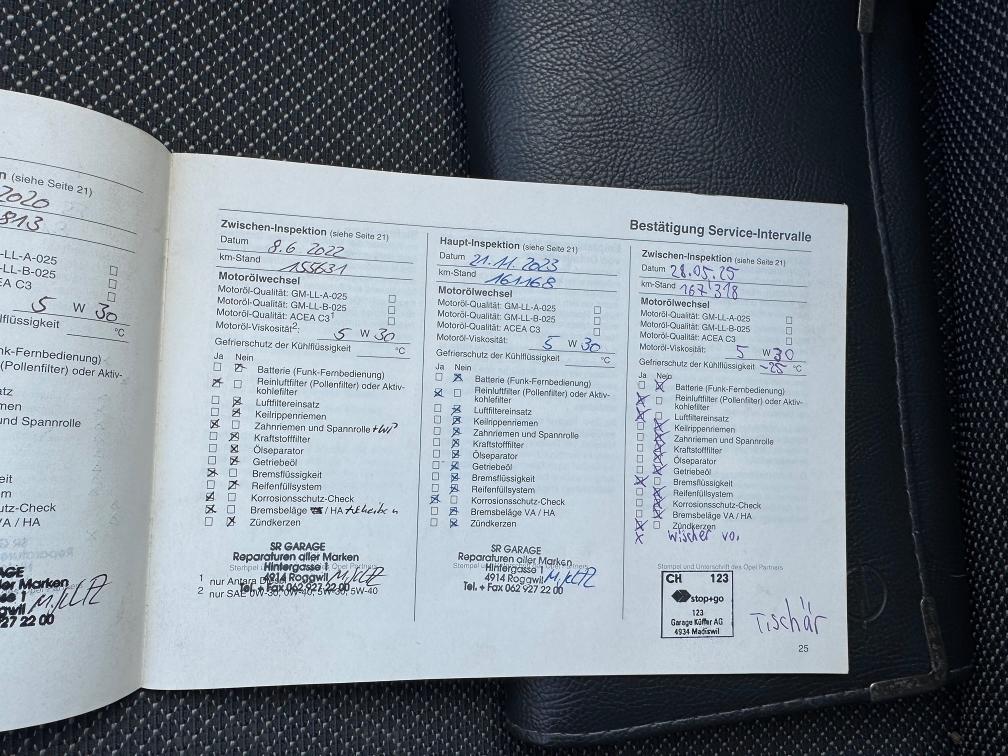 (siehe Seite 21)
2020
813
-LL-A-025
-LL-B-025
EA C3
5 W 30
lflüssigkeit °C
nk-Fernbedienung)
(Pollenfilter) oder Aktiv-
atz
emen
und Spannrolle
eit
m
utz-Check
VA / HA
Marken
M. Kurz
27 22 00
Bestätigung Service-Intervalle
Zwischen-Inspektion (siehe Seite 21)
Datum 8.6 2022
km-Stand 155631
Motorölwechsel
Motoröl-Qualität: GM-LL-A-025
Motoröl-Qualität: GM-LL-B-025
Motoröl-Qualität: ACEA C3¹
Motoröl-Viskosität²: 5 W 30
Gefrierschutz der Kühlflüssigkeit °C
Ja Nein
Batterie (Funk-Fernbedienung)
Reinluftfilter (Pollenfilter) oder Aktiv-
kohlefilter
Luftfiltereinsatz
Keilrippenriemen
Zahnriemen und Spannrolle + WP
Kraftstofffilter
Ölseparator
Getriebeöl
Bremsflüssigkeit
Reifenfüllsystem
Korrosionsschutz-Check
Bremsbeläge / HA + scheiben
Zündkerzen
SR GARAGE
Reparaturen aller Marken
Hintergasse 1
4914 Roggwil
Tel. + Fax 062 927 22 00
1 nur Antara
2 nur SAE 0W-30, 0W-40, 5W-30, 5W-40
Haupt-Inspektion (siehe Seite 21)
Datum 21.11.2023
km-Stand 161168
Motorölwechsel
Motoröl-Qualität: GM-LL-A-025
Motoröl-Qualität: GM-LL-B-025
Motoröl-Qualität: ACEA C3
Motoröl-Viskosität: 5 W 30
Gefrierschutz der Kühlflüssigkeit °C
Ja Nein
Batterie (Funk-Fernbedienung)
Reinluftfilter (Pollenfilter) oder Aktiv-
kohlefilter
Luftfiltereinsatz
Keilrippenriemen
Zahnriemen und Spannrolle
Kraftstofffilter
Ölseparator
Getriebeöl
Bremsflüssigkeit
Reifenfüllsystem
Korrosionsschutz-Check
Bremsbeläge VA / HA
Zündkerzen
SR GARAGE
Reparaturen aller Marken
Hintergasse 1
4914 Roggwil
Tel. + Fax 062 927 22 00
Zwischen-Inspektion (siehe Seite 21)
Datum 28.05.25
km-Stand 167'318
Motorölwechsel
Motoröl-Qualität: GM-LL-A-025
Motoröl-Qualität: GM-LL-B-025
Motoröl-Qualität: ACEA C3
Motoröl-Viskosität: 5 W 30
Gefrierschutz der Kühlflüssigkeit -25 °C
Ja Nein
Batterie (Funk-Fernbedienung)
Reinluftfilter (Pollenfilter) oder Aktiv-
kohlefilter
Luftfiltereinsatz
Keilrippenriemen
Zahnriemen und Spannrolle
Kraftstofffilter
Ölseparator
Getriebeöl
Bremsflüssigkeit
Reifenfüllsystem
Korrosionsschutz-Check
Bremsbeläge VA / HA
Zündkerzen
Wischer vo.
Stempel und Unterschrift des Opel Partners
CH 123
stop+go
123
Garage Küffer AG
4934 Madiswil
Tischär
25